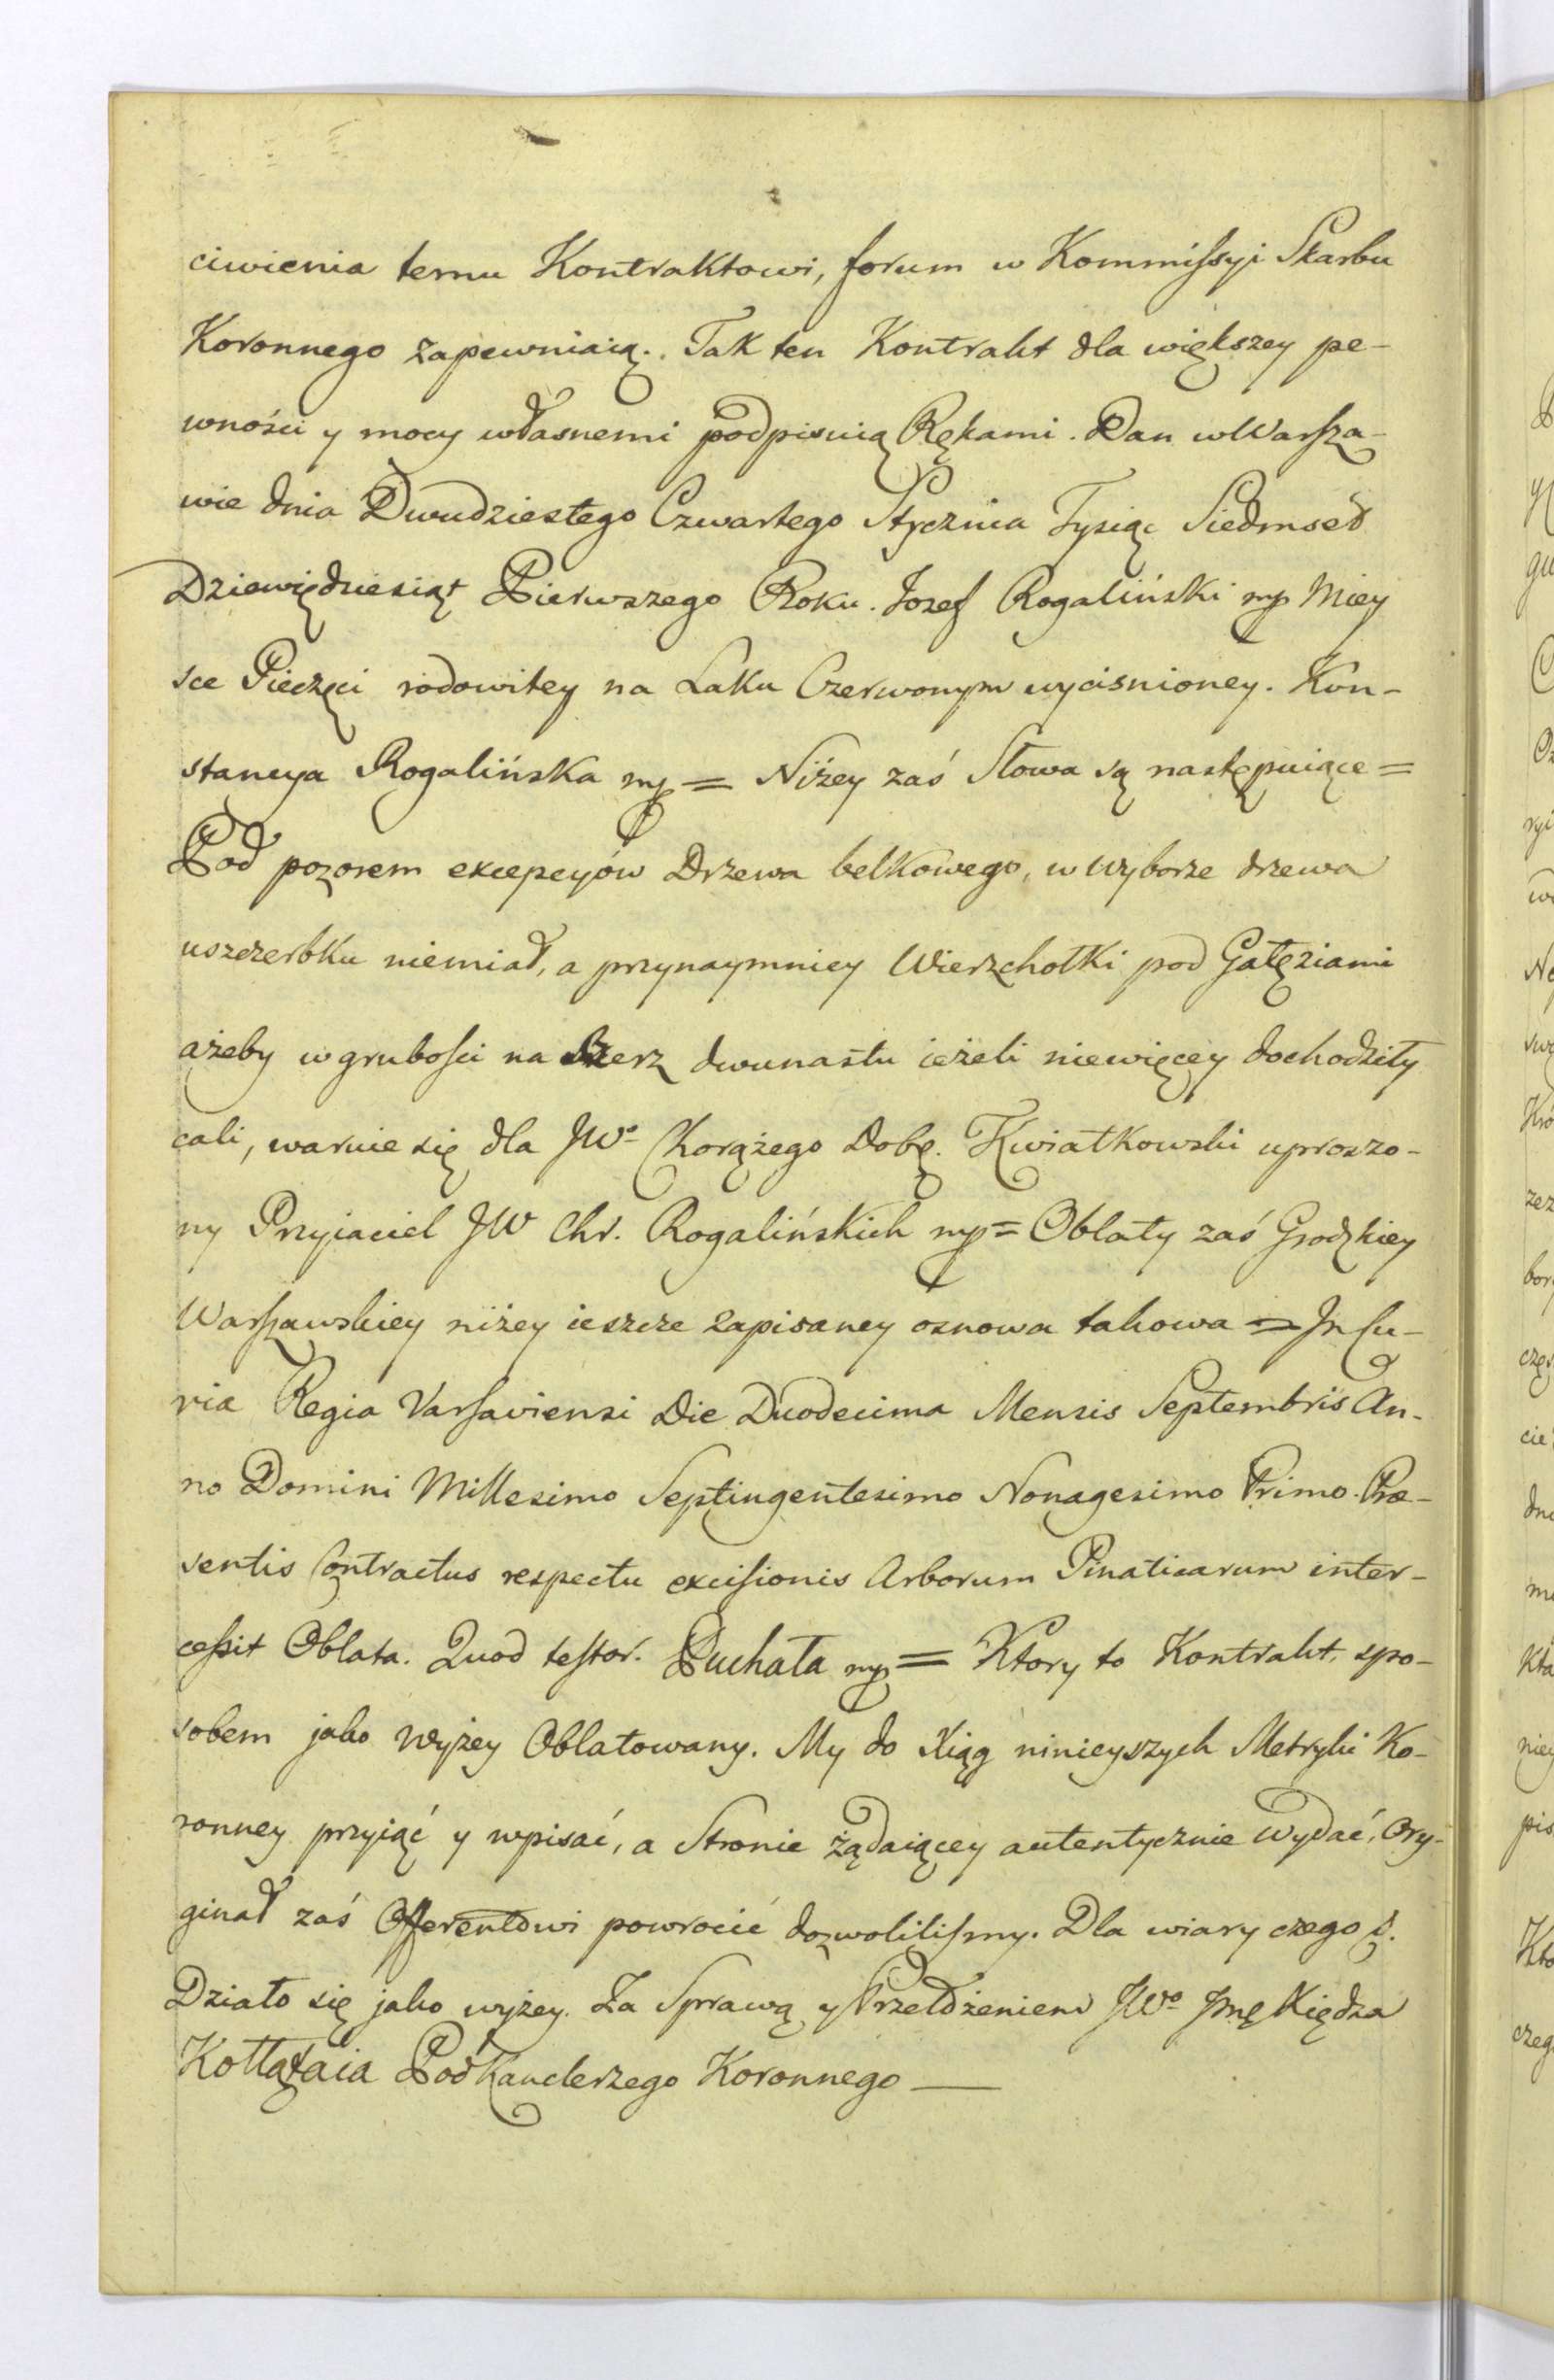 ciwienia temu Kontraktowi, forum w Kommissyi Skarbu
Koronnego zapewniaią. Tak ten Kontrakt dla większey pe-
wności y mocy własnemi podpisuią Rękami. Dan w Warsza-
wie dnia Dwudziestego Czwartego Stycznia Tysiąc Siedmset
Dziewiędziesiąt Pierwszego Roku. Jozef Rogaliński mp Miey
sce Pieczęci rodowitey na Laku Czerwonym wyciśnioney. Kon-
stancya Rogalińska mp = Niżey zaś Słowa są następuiące =
Pod pozorem excepcyów Drzewa belkowego, w wyborze drzewa
uszczerbku niemiał, a przynaymniey Wierzchołki pod Gałęziami
ażeby w grubości na Szerz dwunastu ieżeli niewięcey dochodziły
cali, waruie się dla JWo Chorążego Dobę. Kwiatkowski uproszo-
ny Przyiaciel JW Chr. Rogalińskich mp = Oblaty zaś Grodzkiey
Warszawskiey niżey ieszcze zapisaney osnowa takowa = In Cu-
ria Regia Varsaviensi Die Duodecima Mensis Septembris An-
no Domini Millesimo Septingentesimo Nonagesimo Primo. Præ-
sentis Contractus respectu excisionis Arborum Pinaticarum inter-
cessit Oblata. Quod testor. Puchała mp = Ktory to Kontrakt, spo-
sobem jako wyżey Oblatowany. My do Xiąg ninieyszych Metryki Ko-
ronney przyiąć y wpisać, a Stronie żądaiącey autentycznie wydać, Ory-
ginał zaś Offerentowi powrocić dozwolilismy. Dla wiary czego &.
Działo się jako wyżey. Za Sprawą y Przełożeniem JWo Jmę Xiędza
Kołłątaia PodKanclerzego Koronnego —